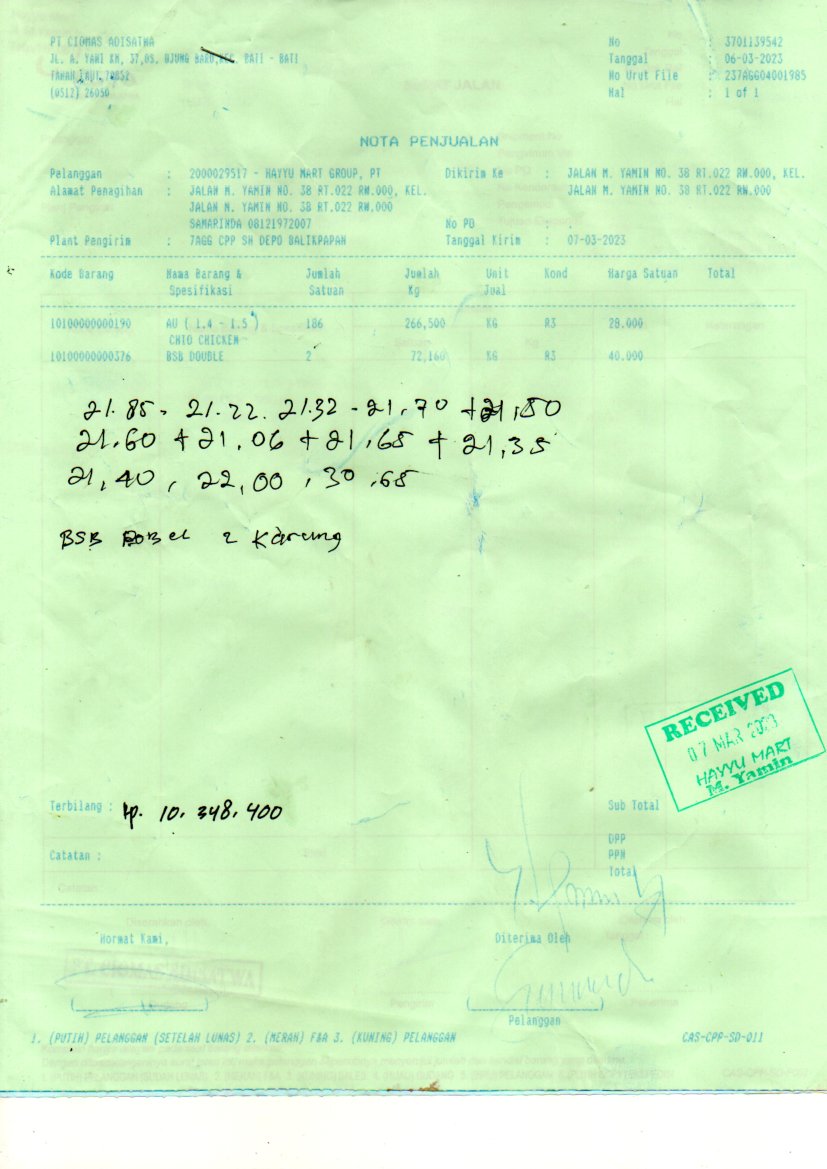 PT CIOMAS ADISATWA
JL. A. YANI KM, 37,05, UJUNG BARU,KEC. BATI - BATI
TANAH LAUT,70852
(0512) 26050
No : 3701139542
Tanggal : 06-03-2023
No Urut File : 237AGG04001985
Hal : 1 of 1
NOTA PENJUALAN
Pelanggan : 2000029517 - HAYYU MART GROUP, PT
Alamat Penagihan : JALAN M. YAMIN NO. 38 RT.022 RW.000, KEL.
JALAN M. YAMIN NO. 38 RT.022 RW.000
SAMARINDA 08121972007
Plant Pengirim : 7AGG CPP SH DEPO BALIKPAPAN
Dikirim Ke : JALAN M. YAMIN NO. 38 RT.022 RW.000, KEL.
JALAN M. YAMIN NO. 38 RT.022 RW.000
No PO : .
Tanggal Kirim : 07-03-2023
Kode Barang Nama Barang & Jumlah Jumlah Unit Kond Harga Satuan Total
Spesifikasi Satuan Kg Jual
10100000000190 AU ( 1.4 - 1.5 ) 186 266,500 KG R3 28.000
CHIO CHICKEN
10100000000376 BSB DOUBLE 2 72,160 KG R3 40.000
21.85. 21.22. 21.32 - 21,70 + 21,80
21,60 + 21,06 + 21,65 + 21,35
21,40, 22,00, 30,65
BSB DOBEL 2 Karung
RECEIVED
07 MAR 2023
HAYYU MART
M. Yamin
Terbilang : Rp. 10.348.400
Sub Total
DPP
Catatan : PPN
Total
Hormat Kami,
Diterima Oleh
PT CIOMAS ADISATWA
Pelanggan
1. (PUTIH) PELANGGAN (SETELAH LUNAS) 2. (MERAH) F&A 3. (KUNING) PELANGGAN
CAS-CPP-SD-011